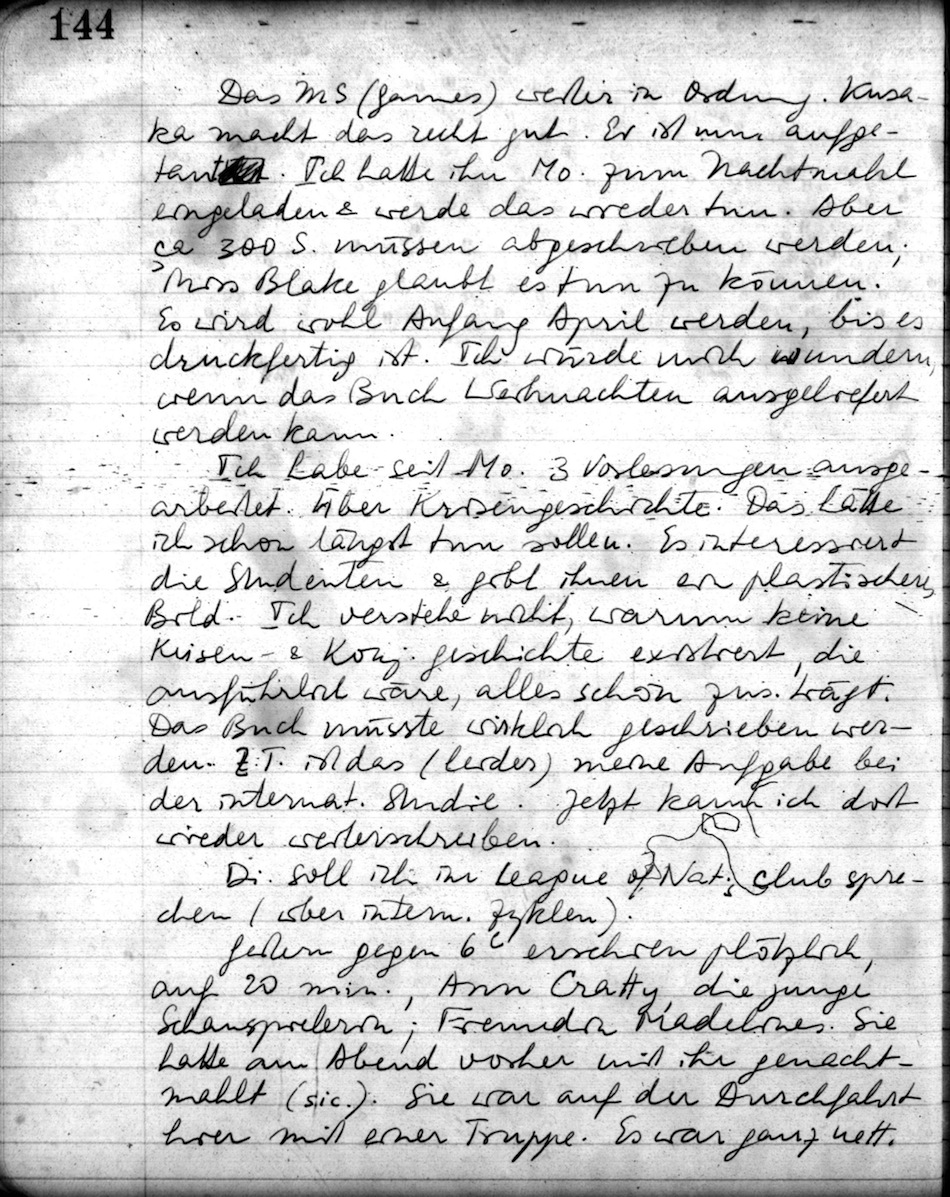 144
Das MS (games) weiter in Ordnung. Kusa-
ka macht das recht gut. Er ist nun aufge-
taut. Ich hatte ihn Mo. zum Nachtmahl
eingeladen & werde das wieder tun. Aber
ca 300 S. müssen abgeschrieben werden;
Miss Blake glaubt es tun zu können.
Es wird wohl Anfang April werden, bis es
druckfertig ist. Ich würde mich wundern,
wenn das Buch Weihnachten ausgeliefert
werden kann.
Ich habe seit Mo. 3 Vorlesungen ausge-
arbeitet über Krisengeschichte. Das hätte
ich schon längst tun sollen. Es interessiert
die Studenten & gibt ihnen ein plastisches
Bild. Ich verstehe nicht, warum keine
Krisen- & Konj. geschichte existiert, die
ausführlich wäre, alles schön zus. trägt.
Das Buch müsste wirklich geschrieben wer-
den. Z.T. ist das (leider) meine Aufgabe bei
der internat. Studie. Jetzt kann ich dort
wieder weiterschreiben.
Di. soll ich im League of Nat.s club spre-
chen (über intern. Zyklen).
Gestern gegen 6 erschien plötzlich,
auf 20 min., Ann Cratty, die junge
Schauspielerin; Freundin Madelines. Sie
hatte am Abend vorher mit ihr genacht-
mahlt (sic.). Sie war auf der Durchfahrt
hier mit einer Truppe. Es war ganz nett.